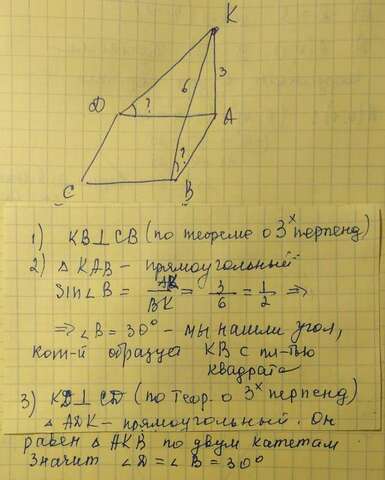 K
3
6
D ?
A
?
C
B
1) KB⊥CB (по теореме о 3ˣ перпенд)
2) △ KAB – прямоугольный
sin∠B = AK/BK = 3/6 = 1/2 ⇒
⇒ ∠B = 30° – мы нашли угол,
кот-й образует KB с пл-тью
квадрата
3) KD⊥CD (по теор. о 3ˣ перпенд)
△ ADK – прямоугольный. Он
равен △ AKB по двум катетам
Значит ∠D = ∠B = 30°